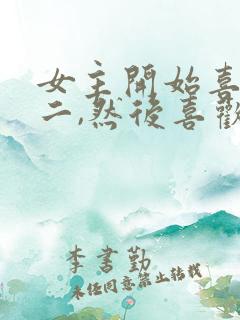 女主開始喜
二,然後喜歡
李書勤
未經同意禁止轉載